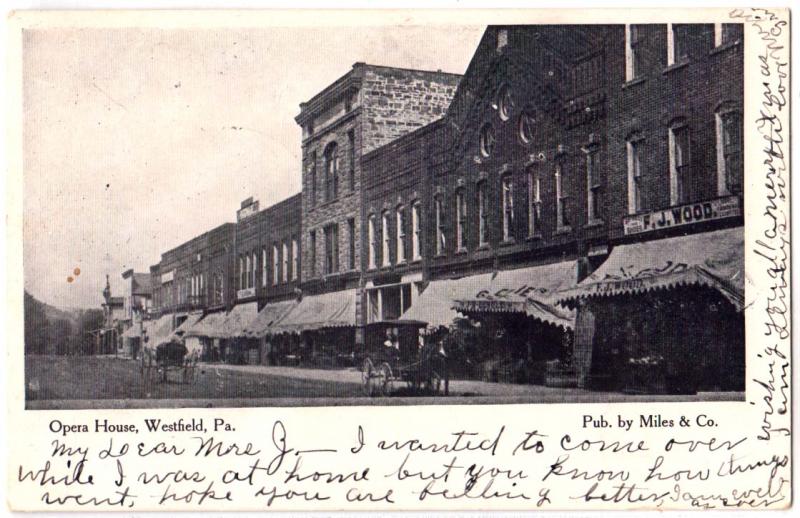 F. J. WOOD.
F. J. WOOD.
Opera House, Westfield, Pa.
Pub. by Miles & Co.
My Dear Mrs. J— I wanted to come over
while I was at home but you know how things
went, hope you are feeling better, I am well
as ever
wishing you all a merry Xmas
I am sending with love